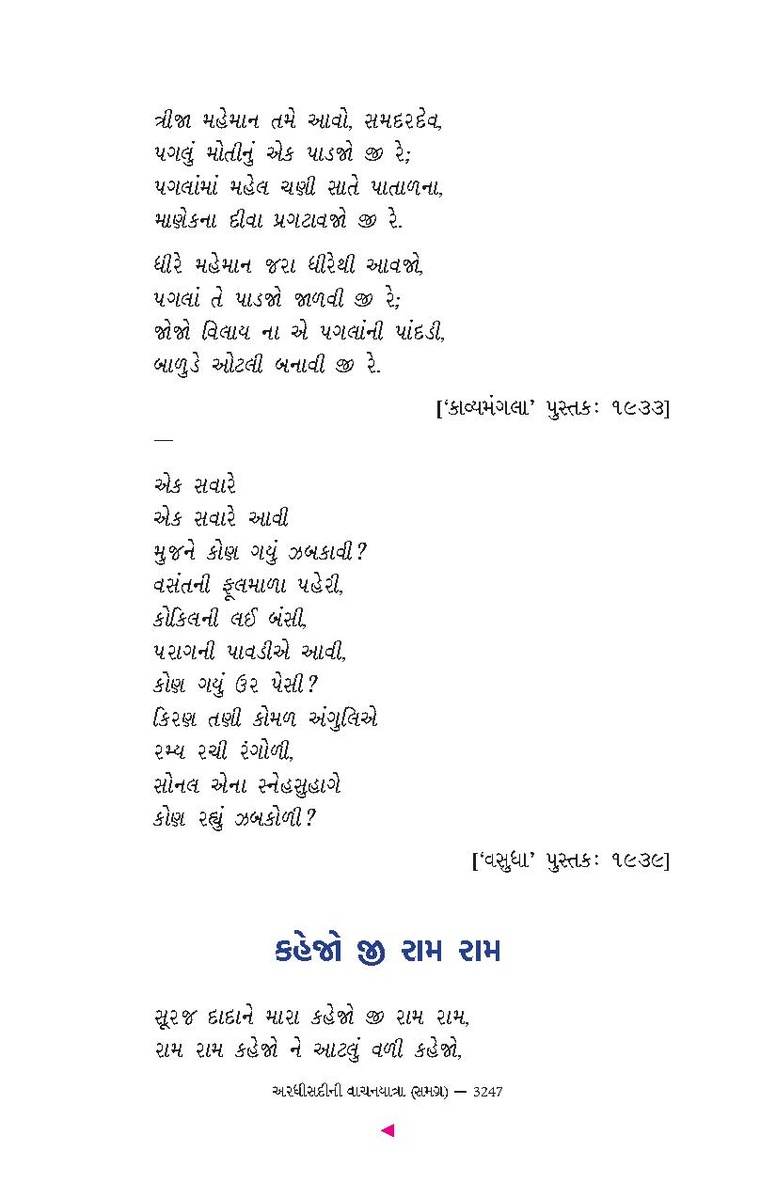 ત્રીજા મહેમાન તમે આવો, સમદરદેવ,
પગલું મોતીનું એક પાડજો જી રે;
પગલાંમાં મહેલ ચણી સાતે પાતાળના,
માણેકના દીવા પ્રગટાવજો જી રે.
ધીરે મહેમાન જરા ધીરેથી આવજો,
પગલાં તે પાડજો જાળવી જી રે;
જોજો વિલાય ના એ પગલાંની પાંદડી,
બાળુડે ઓટલી બનાવી જી રે.
[‘કાવ્યમંગલા’ પુસ્તક: ૧૯૩૩]
—
એક સવારે
એક સવારે આવી
મુજને કોણ ગયું ઝબકાવી?
વસંતની ફૂલમાળા પહેરી,
કોકિલની લઈ બંસી,
પરાગની પાવડીએ આવી,
કોણ ગયું ઉર પેસી?
કિરણ તણી કોમળ અંગુલિએ
રમ્ય રચી રંગોળી,
સોનલ એના સ્નેહસુહાગે
કોણ રહ્યું ઝબકોળી?
[‘વસુધા’ પુસ્તક: ૧૯૩૯]
કહેજો જી રામ રામ
સૂરજ દાદાને મારા કહેજો જી રામ રામ,
રામ રામ કહેજો ને આટલું વળી કહેજો,
અરધીસદીની વાચનયાત્રા (સમગ્ર) — 3247